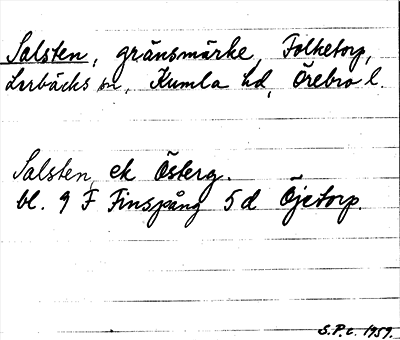 Salsten, gränsmärke, Folketorp,
Lerbäcks sn, Kumla hd, Örebro l.
Salsten, ek Österg.
bl. 9 F Finspång 5d Öjetorp.
S.P.c. 1959.